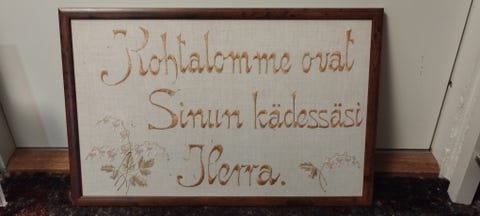 Kohtalomme ovat
Sinun kädessäsi
Herra.